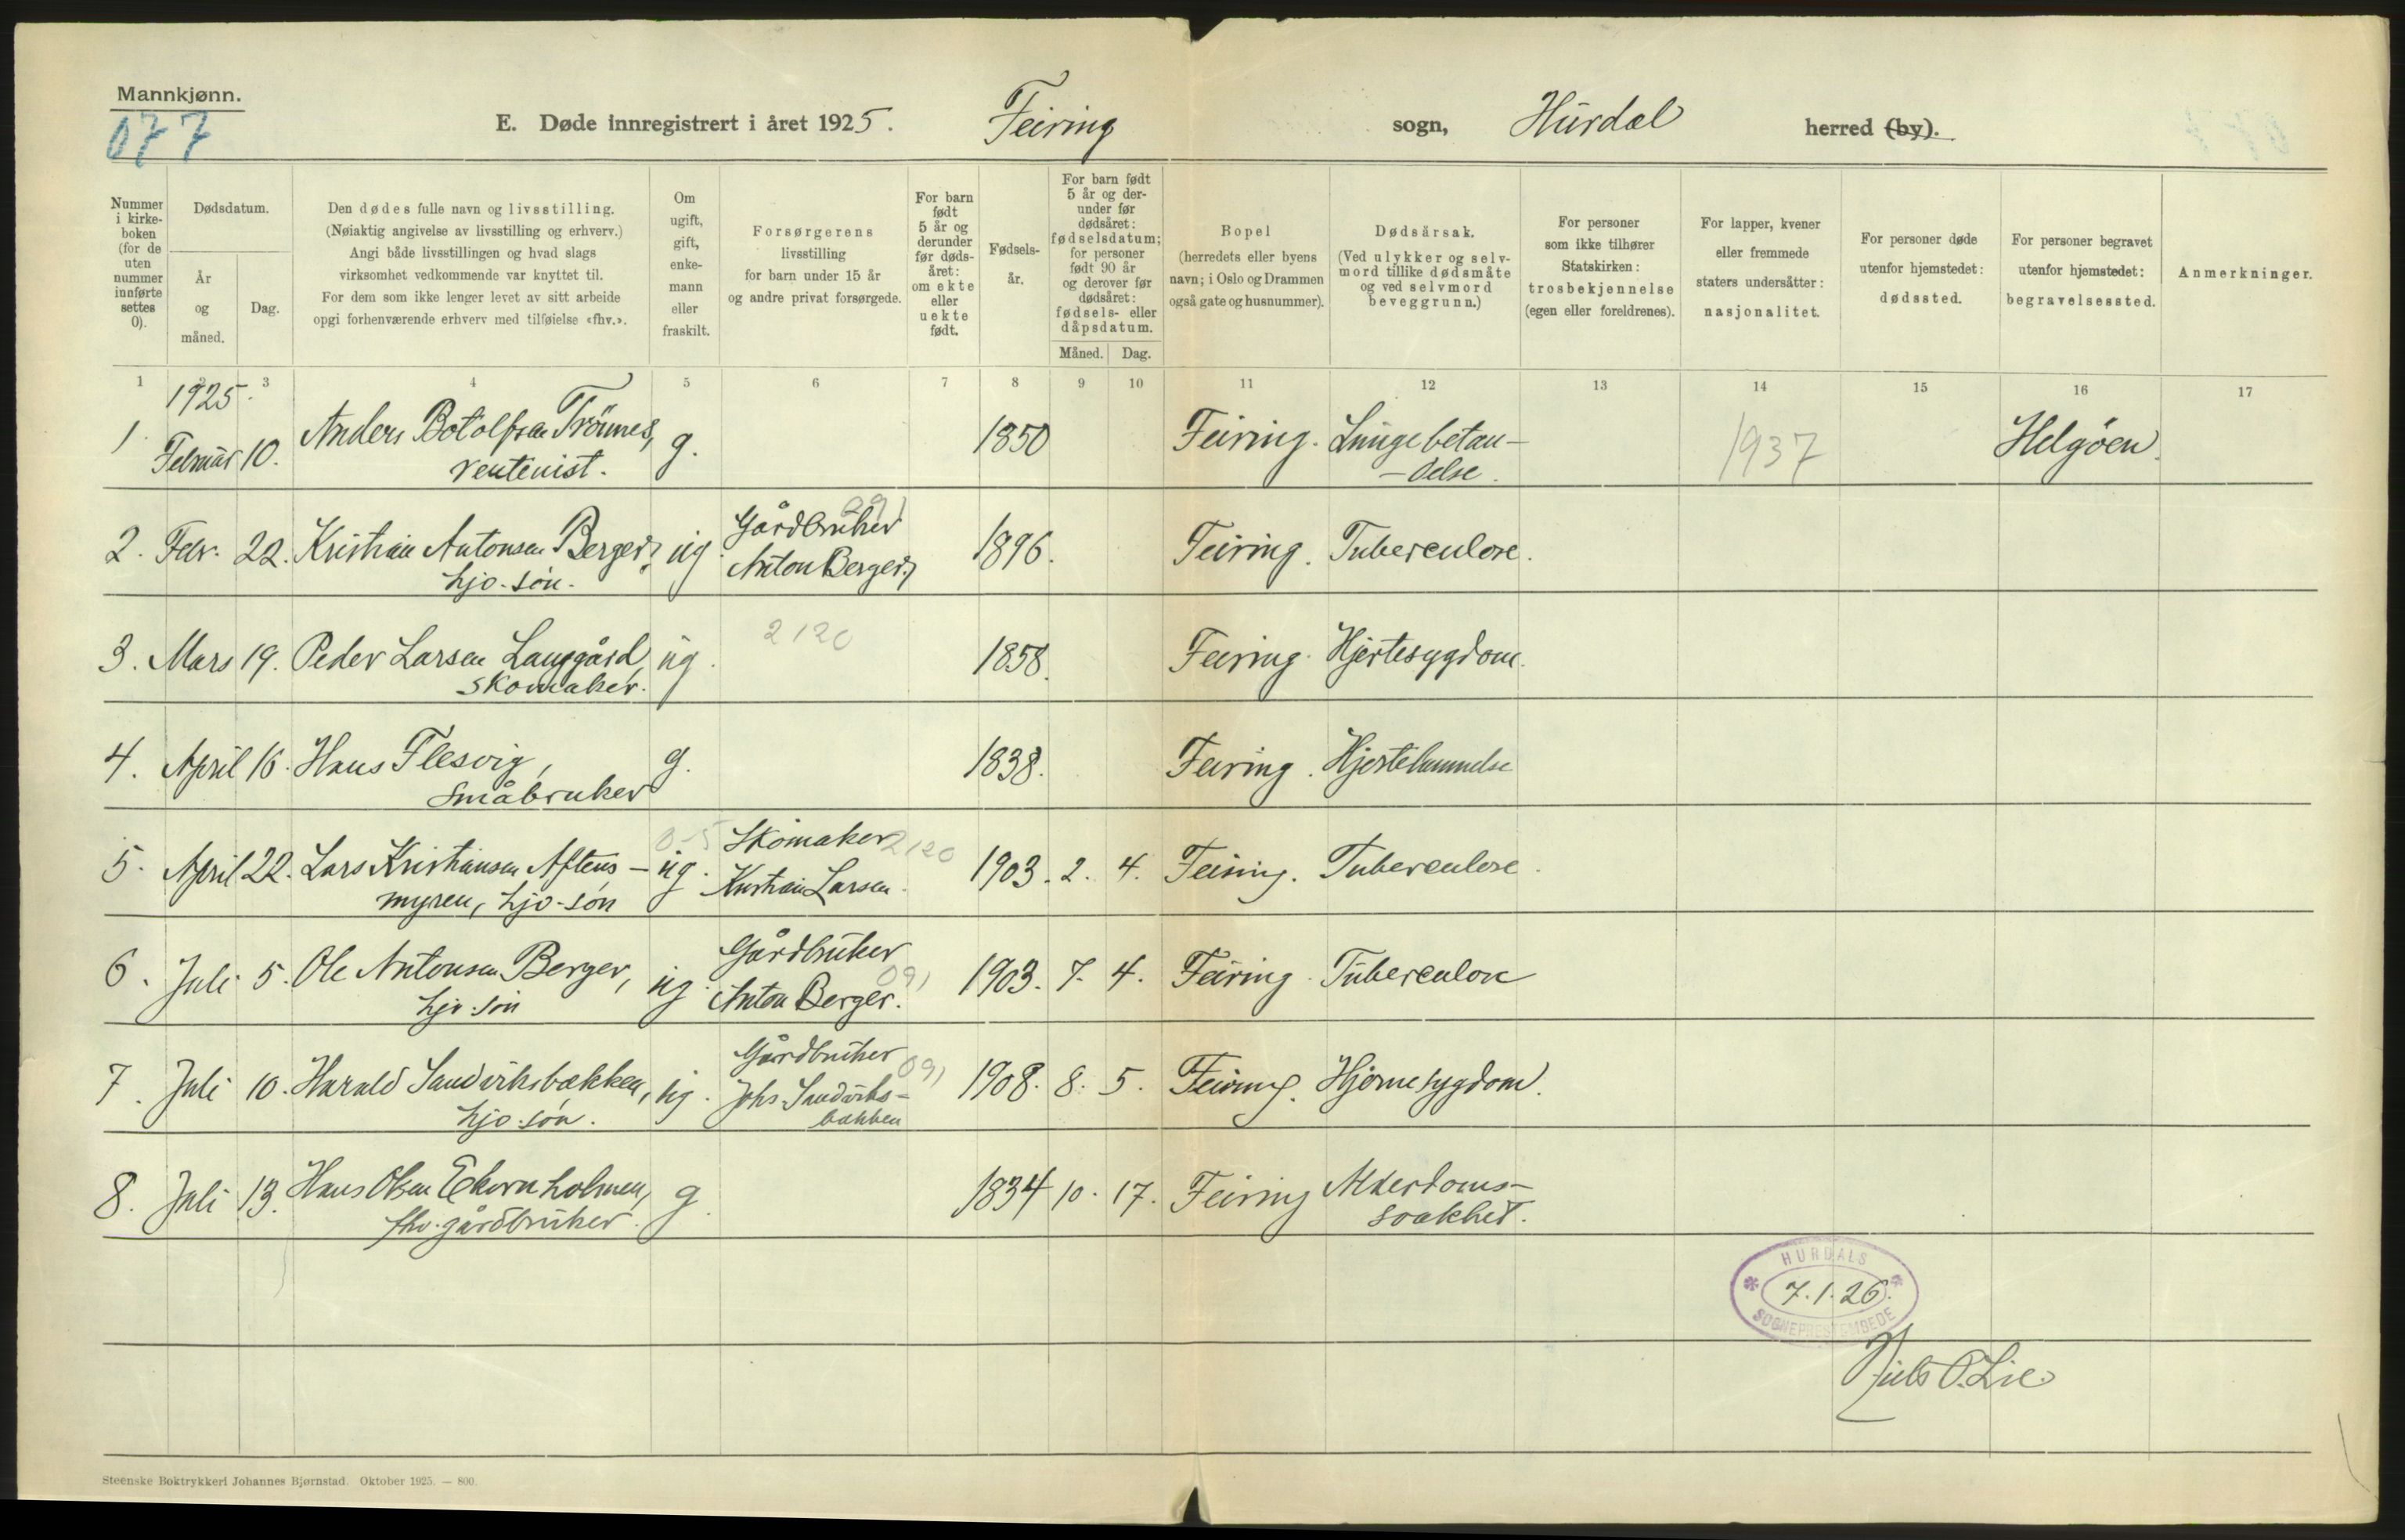 Mannkjønn.
077
E. Døde innregistrert i året 1925.
Feiring
sogn,
Hurdal
herred (by).
Nummer
i kirke-
boken
(for de
uten
nummer
innførte
settes
0).
Dødsdatum.
År
og
måned.
Dag.
Den dødes fulle navn og livsstilling.
(Nøiaktig angivelse av livsstilling og erhverv.)
Angi både livsstillingen og hvad slags
virksomhet vedkommende var knyttet til.
For dem som ikke lenger levet av sitt arbeide
opgi forhenværende erhverv med tilføielse «fhv.».
Om
ugift,
gift,
enke-
mann
eller
fraskilt.
Forsørgerens
livsstilling
for barn under 15 år
og andre privat forsørgede.
For barn
født
5 år og
derunder
før døds-
året:
om ekte
eller
uekte
født.
Fødsels-
år.
For barn født
5 år og der-
under før
dødsåret:
fødselsdatum;
for personer
født 90 år
og derover før
dødsåret:
fødsels- eller
dåpsdatum.
Måned.
Dag.
Bopel
(herredets eller byens
navn; i Oslo og Drammen
også gate og husnummer).
Dødsårsak.
(Ved ulykker og selv-
mord tillike dødsmåte
og ved selvmord
beveggrunn.)
For personer
som ikke tilhører
Statskirken:
trosbekjennelse
(egen eller foreldrenes).
For lapper, kvener
eller fremmede
staters undersåtter:
nasjonalitet.
For personer døde
utenfor hjemstedet:
dødssted.
For personer begravet
utenfor hjemstedet:
begravelsessted.
Anmerkninger.
1 2 3 4 5 6 7 8 9 10 11 12 13 14 15 16 17
1925.
1 Februar 10. Anders Botolfsen Trönnes, g. 1850 Feiring. Lungebetæn- 1937 Helgöen.
rentenist. -delse.
2. Febr. 22. Kristian Antonsen Berger, ug. Gårdbruker 091 1896. Feiring. Tuberculose.
hjv. søn. Anton Berger,
3. Mars 19. Peder Larsen Langgård, ug. 2120 1858. Feiring. Hjertesygdom.
skomaker.
4. April 16. Hans Flesvig, g. 1838. Feiring. Hjertelammelse
småbruker
5. April 22. Lars Kristiansen Aftens- ug. Skomaker 2120 1903. 2. 4. Feiring. Tuberculose.
myren, hjv-søn Kristian Larsen.
6. Juli 5. Ole Antonsen Berger, ug. Gårdbruker 1903. 7. 4. Feiring. Tuberculose
hjv. søn Anton Berger. 091
7. Juli 10. Harald Sandviksbækken, ug. Gårdbruker 091 1908. 8. 5. Feiring. Hjernesygdom.
hjv. søn. Johs Sandviks-
bækken
8. Juli 13. Hans Olsen Ekornholmen, g. 1834 10. 17. Feiring Alderdoms-
fhv. gårdbruker. svakhet.
HURDALS
7.1.26.
SOGNEPRESTEMBEDE
Niels O. Lie
Steenske Boktrykkeri Johannes Bjørnstad. Oktober 1925. — 800.